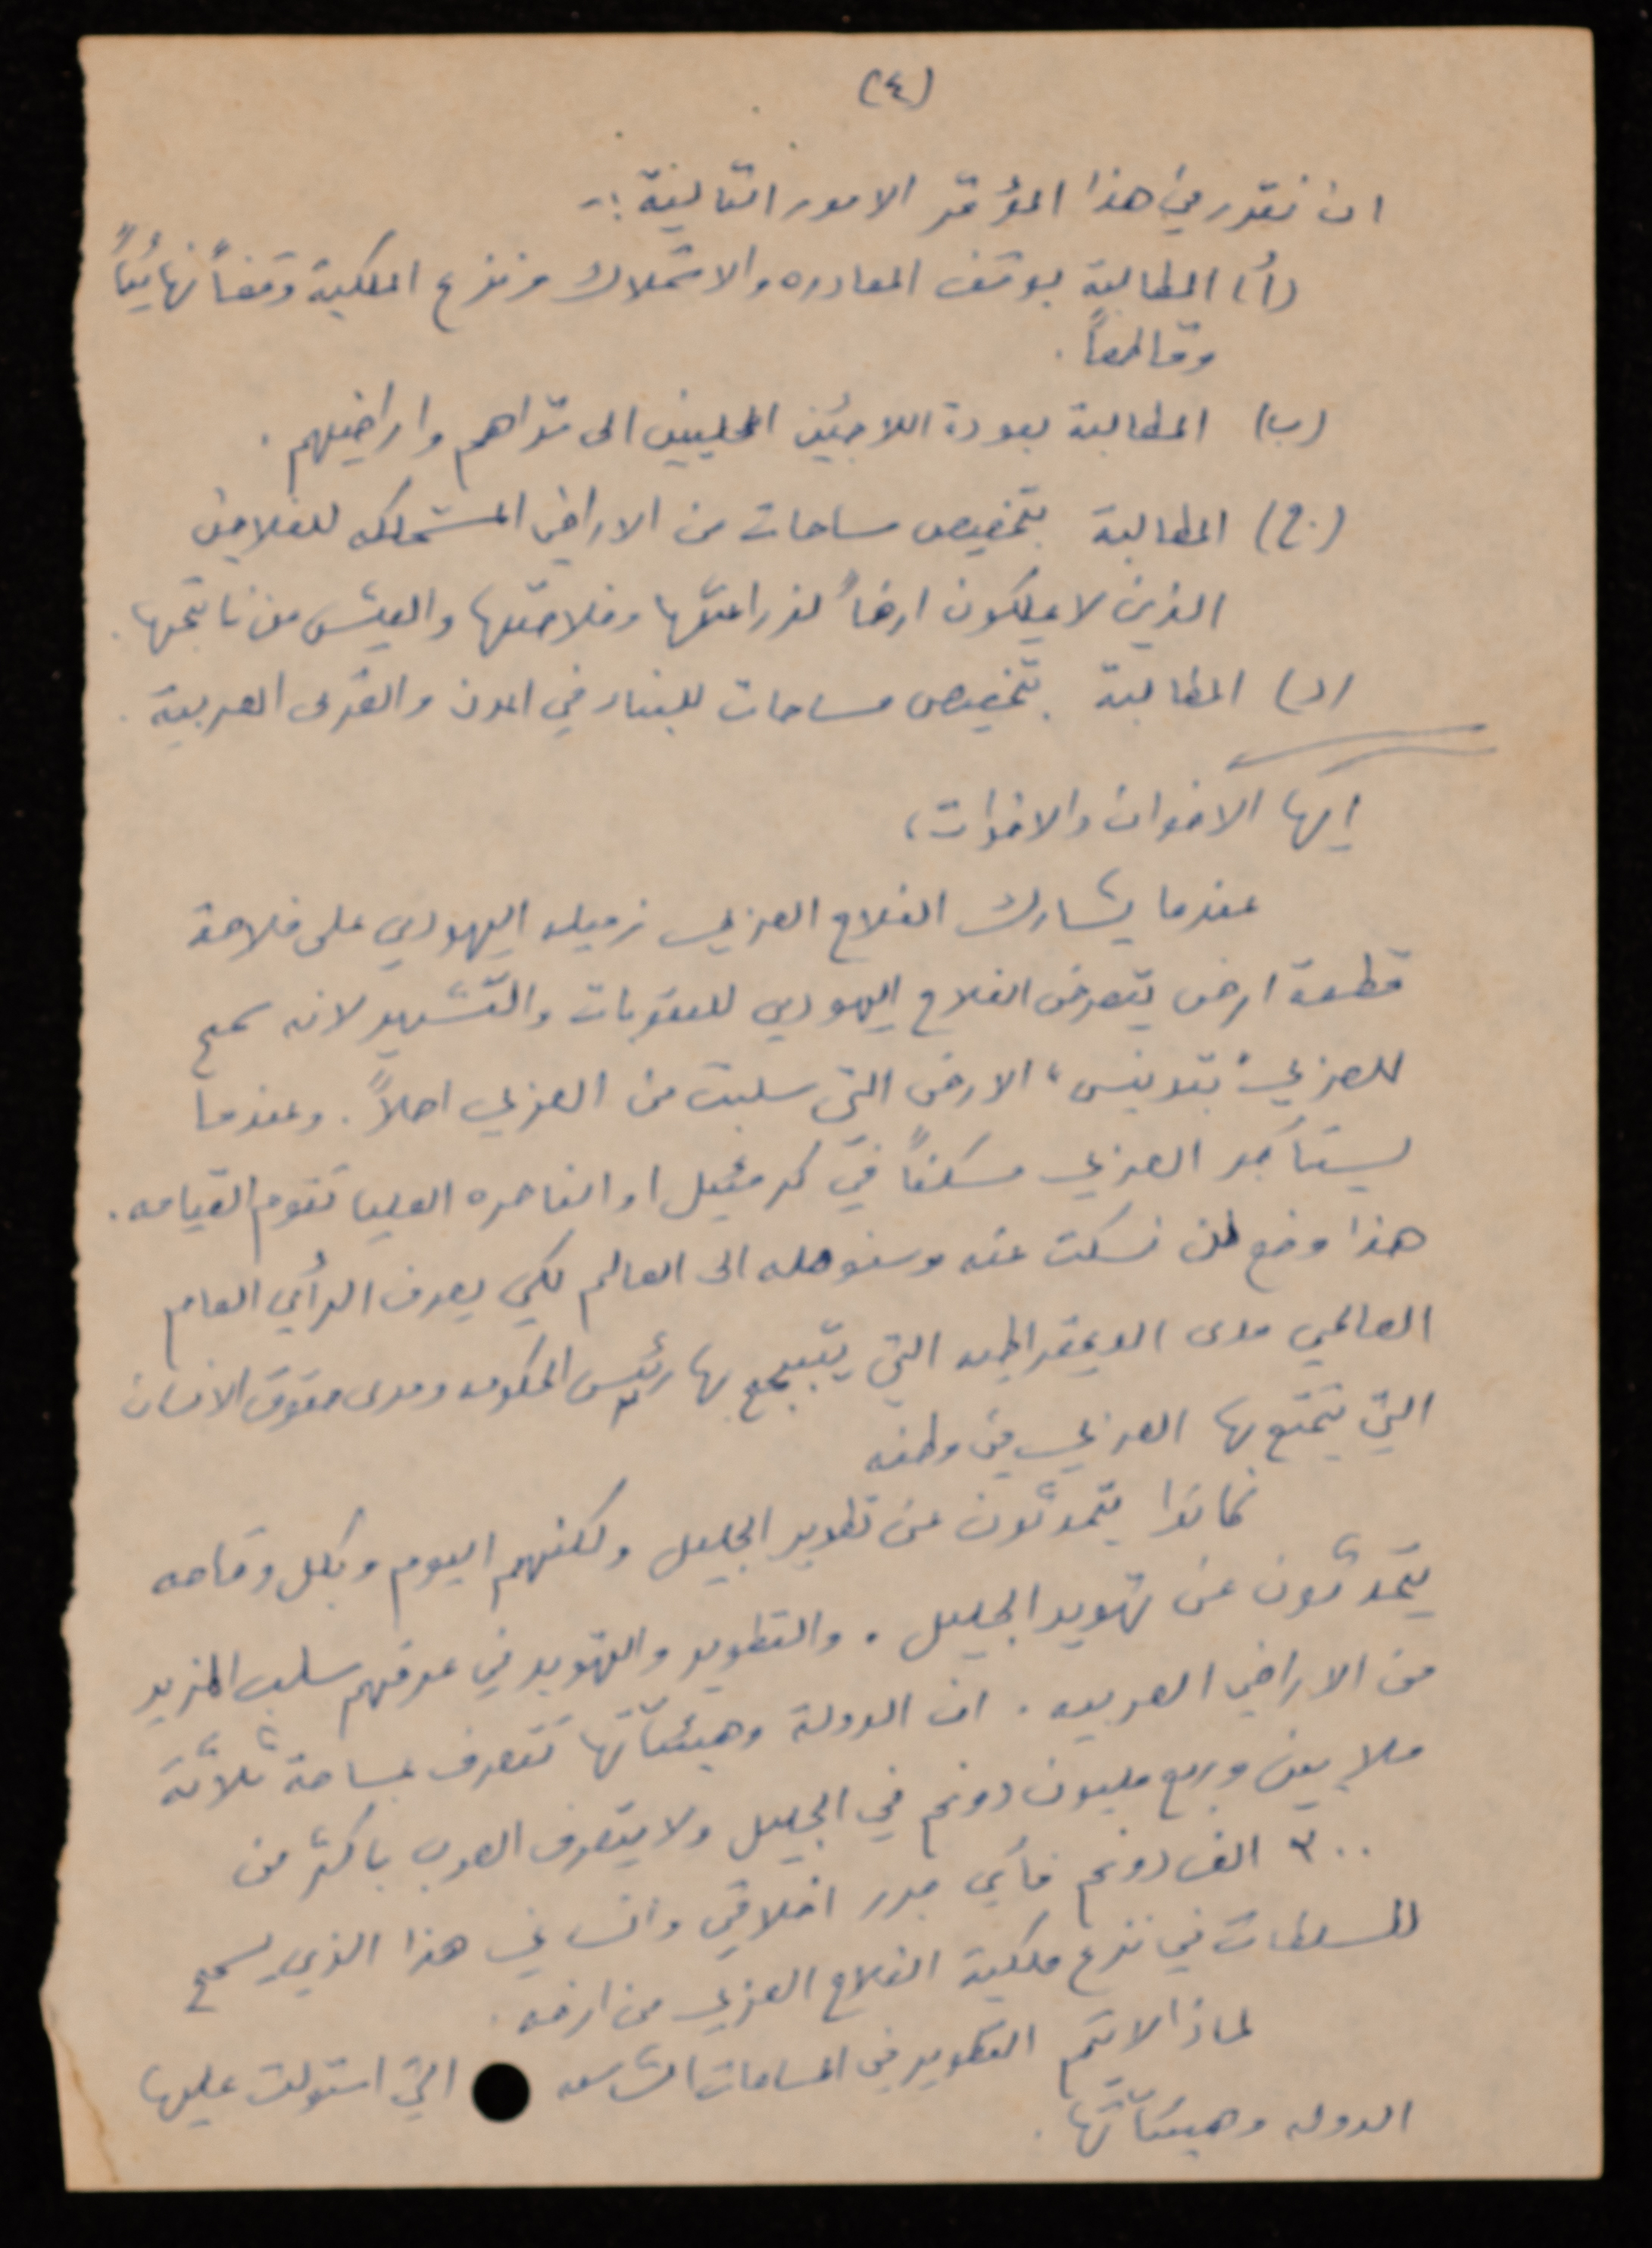 (٤)
ان نقرر في هذا المؤتمر الامور التالية :-
(أ) المطالبة بوقف المصادره والاستملاك ونزع الملكية وقفاً نهائياً
وقاطعاً .
(ب) المطالبة بعودة اللاجئين المحليين الى قراهم واراضيهم .
(ج) المطالبة بتخصيص مساحات من الاراضي المستملكه للفلاحين
الذين لا يملكون ارضاً لزراعتها وفلاحتها والعيش من ناتجها .
(د) المطالبة بتخصيص مساحات للبناء في المدن والقرى العربية .
ايها الاخوان والاخوات،
عندما يشارك الفلاح العربي زميله اليهودي على فلاحة
قطعة ارض يتعرض الفلاح اليهودي للعقوبات والتشهير لانه سمح
للعربي "بتدنيس" الارض التي سلبت من العربي اصلاً . وعندما
يستأجر العربي مسكناً في كرمئيل او الناصره العليا تقوم القيامه .
هذا وضع لن نسكت عنه وسنوصله الى العالم لكي يعرف الرأي العام
العالمي مدى الديمقراطيه التي يتبجح بها رئيس الحكومه ومدى حقوق الانسان
التي يتمتع بها العربي في وطنه
كانوا يتحدثون عن تطوير الجليل ولكنهم اليوم وبكل وقاحه
يتحدثون عن تهويد الجليل . والتطوير والتهويد في عرفهم سلب المزيد
من الاراضي العربيه . ان الدولة وهيئآتها تتصرف بمساحة ثلاثة
ملايين وربع مليون دونم في الجليل ولا يتصرف العرب باكثر من
٣٠٠ الف دونم فأي مبرر اخلاقي وانساني هذا الذي يسمح
للسلطات في نزع ملكية الفلاح العربي من ارضه .
لماذا لا يتم التطوير في المساحات الشاسعه التي استولت عليها
الدوله وهيئآتها .